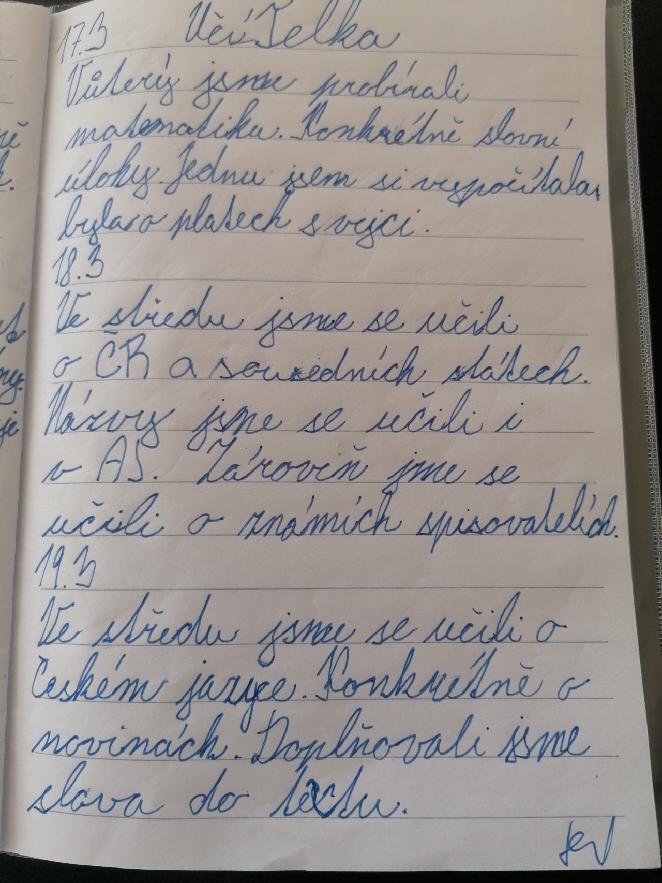 17.3 Učitelka
Vúterý jsme probírali
matematiku. Konkrétně slovní
úlohy. Jednu jsem si vypočítala,
byla o platech s vejci.
18.3
Ve středu jsme se učili
o ČR a sousedních státech.
Názvy jsme se učili i
v AJ. Zároveň jme se
učili o známích spisovatelích.
19.3
Ve středu jsme se učili o
českém jazyce. Konkrétně o
novinách. Doplňovali jsme
slova do textu.